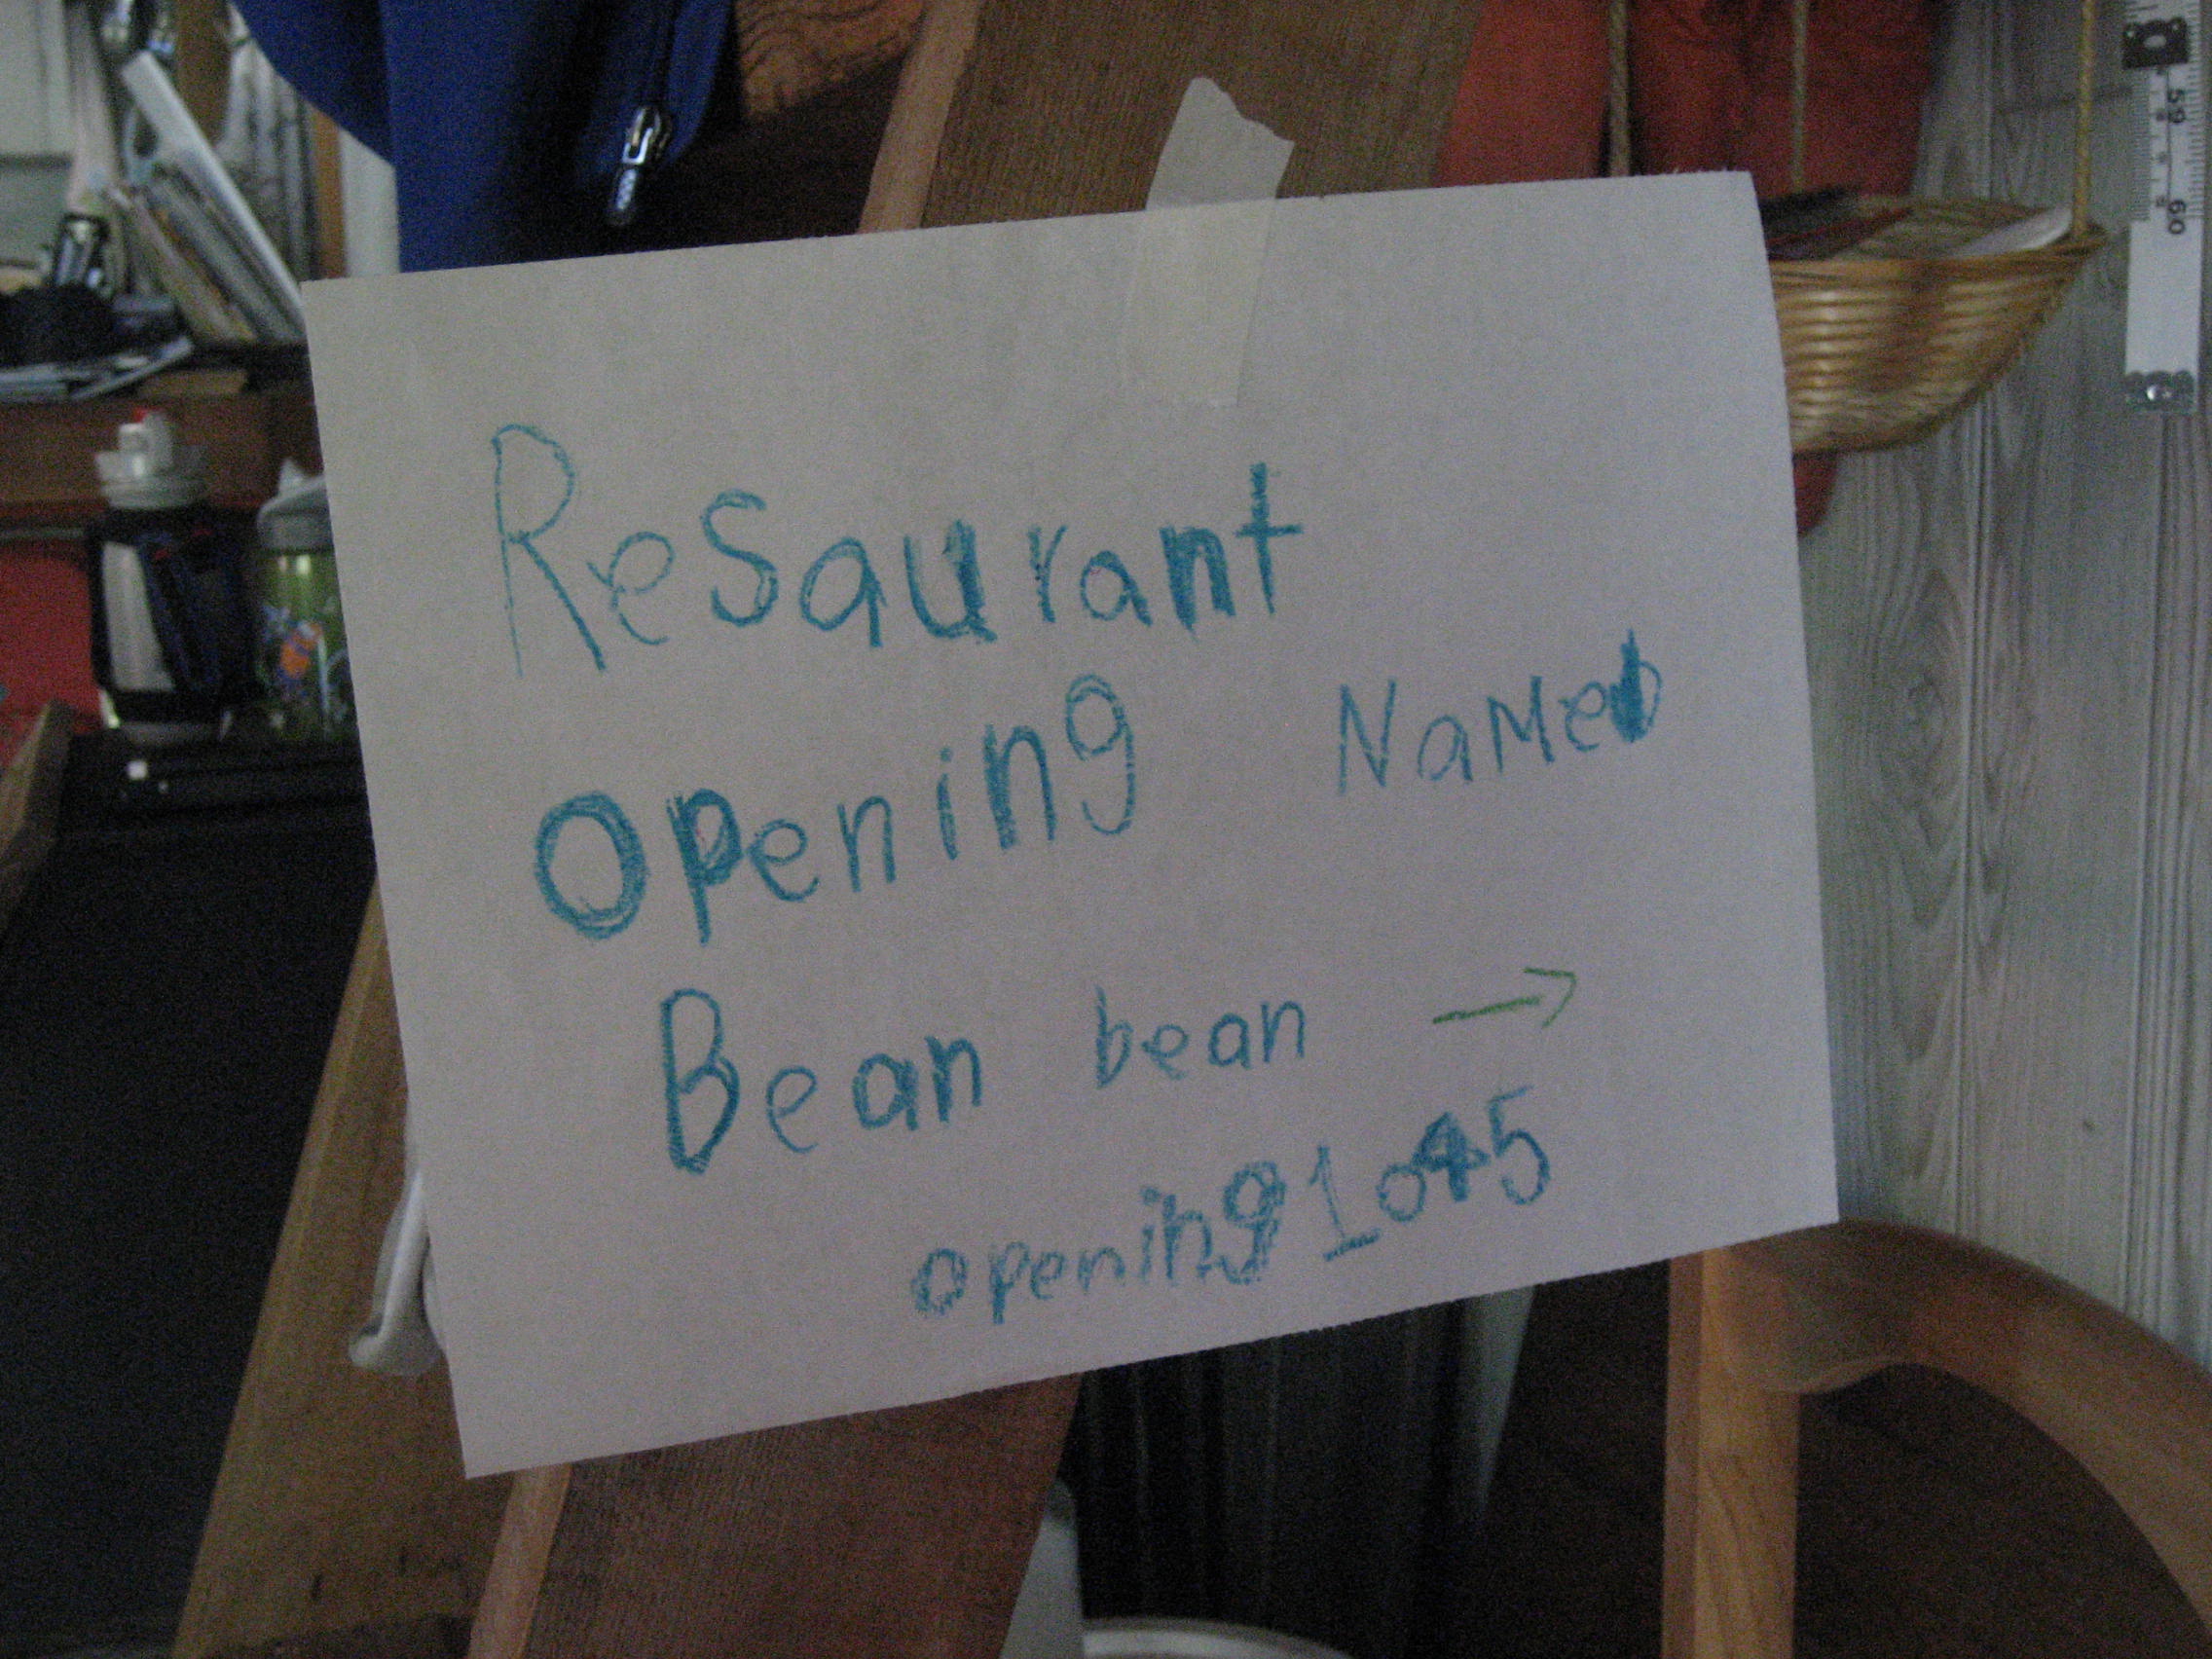 Resaurant
opening Named
Bean bean →
opening 1045
59
60